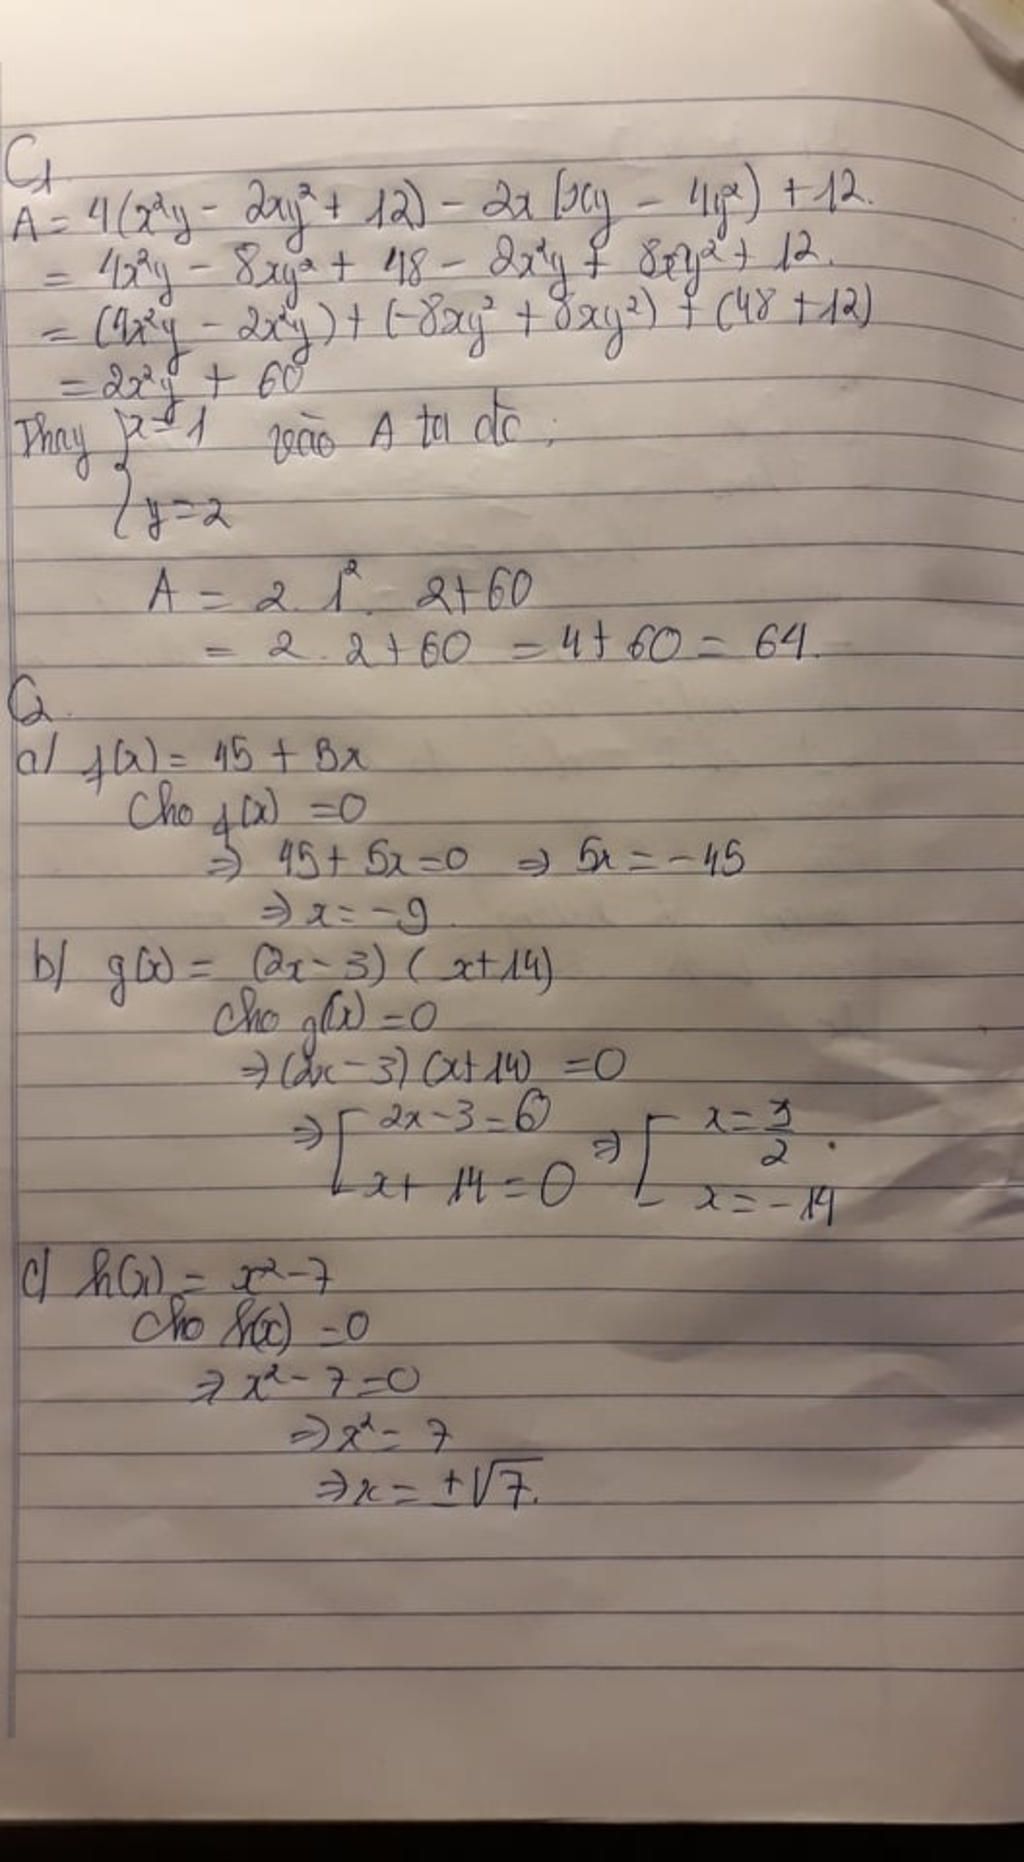 C1
A = 4(x²y - 2xy² + 12) - 2x (xy - 4y²) + 12.
= 4x²y - 8xy² + 48 - 2x²y + 8xy² + 12.
= (4x²y - 2x²y) + (-8xy² + 8xy²) + (48 + 12)
= 2x²y + 60
Thay { x = 1 vào A ta đc :
y = 2
A = 2. 1². 2 + 60
= 2 . 2 + 60 = 4 + 60 = 64.
C2
a/ f(x) = 45 + 5x
Cho f(x) = 0
⇒ 45 + 5x = 0 ⇒ 5x = -45
⇒ x = -9.
b/ g(x) = (2x - 3) (x + 14)
Cho g(x) = 0
⇒ (2x - 3) (x + 14) = 0
⇒ [ 2x - 3 = 0 ⇒ [ x = 3/2 .
x + 14 = 0 x = -14
c/ h(x) = x² - 7
Cho h(x) = 0
⇒ x² - 7 = 0
⇒ x² = 7
⇒ x = ±√7.